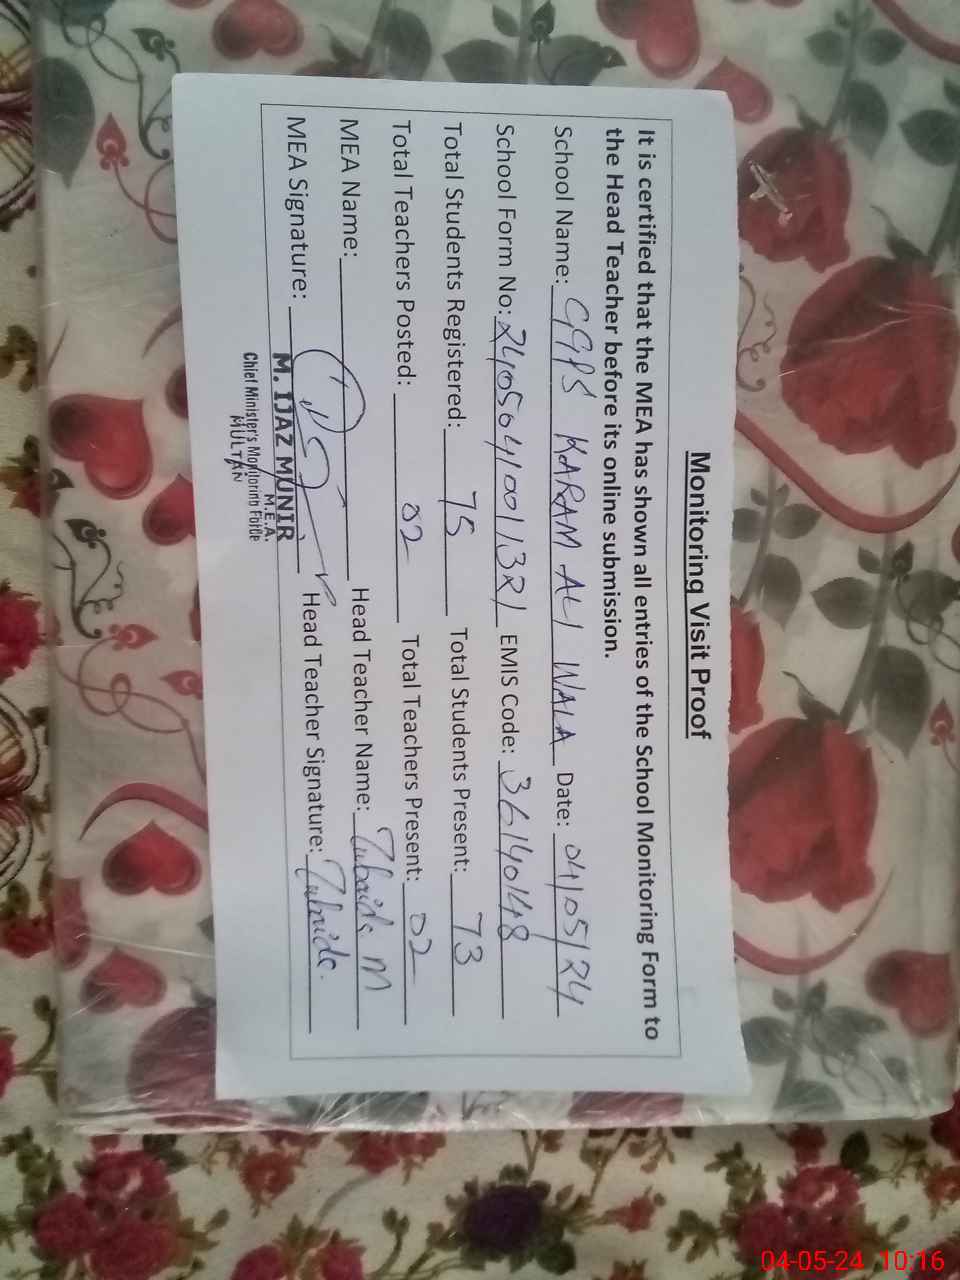 Monitoring Visit Proof
It is certified that the MEA has shown all entries of the School Monitoring Form to
the Head Teacher before its online submission.
School Name: GGPS KARAM ALI WALA Date: 04/05/24
School Form No: 2405041001321 EMIS Code: 36140148
Total Students Registered: 75 Total Students Present: 73
Total Teachers Posted: 02 Total Teachers Present: 02
MEA Name: Head Teacher Name: Zubaida M
MEA Signature: Head Teacher Signature: Zubaida.
M. IJAZ MUNIR
M.E.A.
Chief Minister's Monitoring Force
MULTAN
04-05-24 10:16